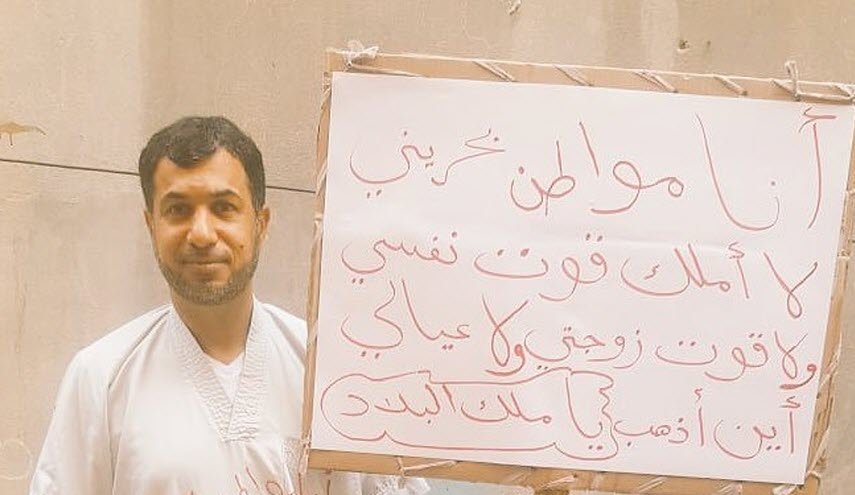 أنا مواطن بحريني
لا أملك قوت نفسي
ولا قوت زوجتي ولا عيالي
أين أذهب يا ملك البلاد